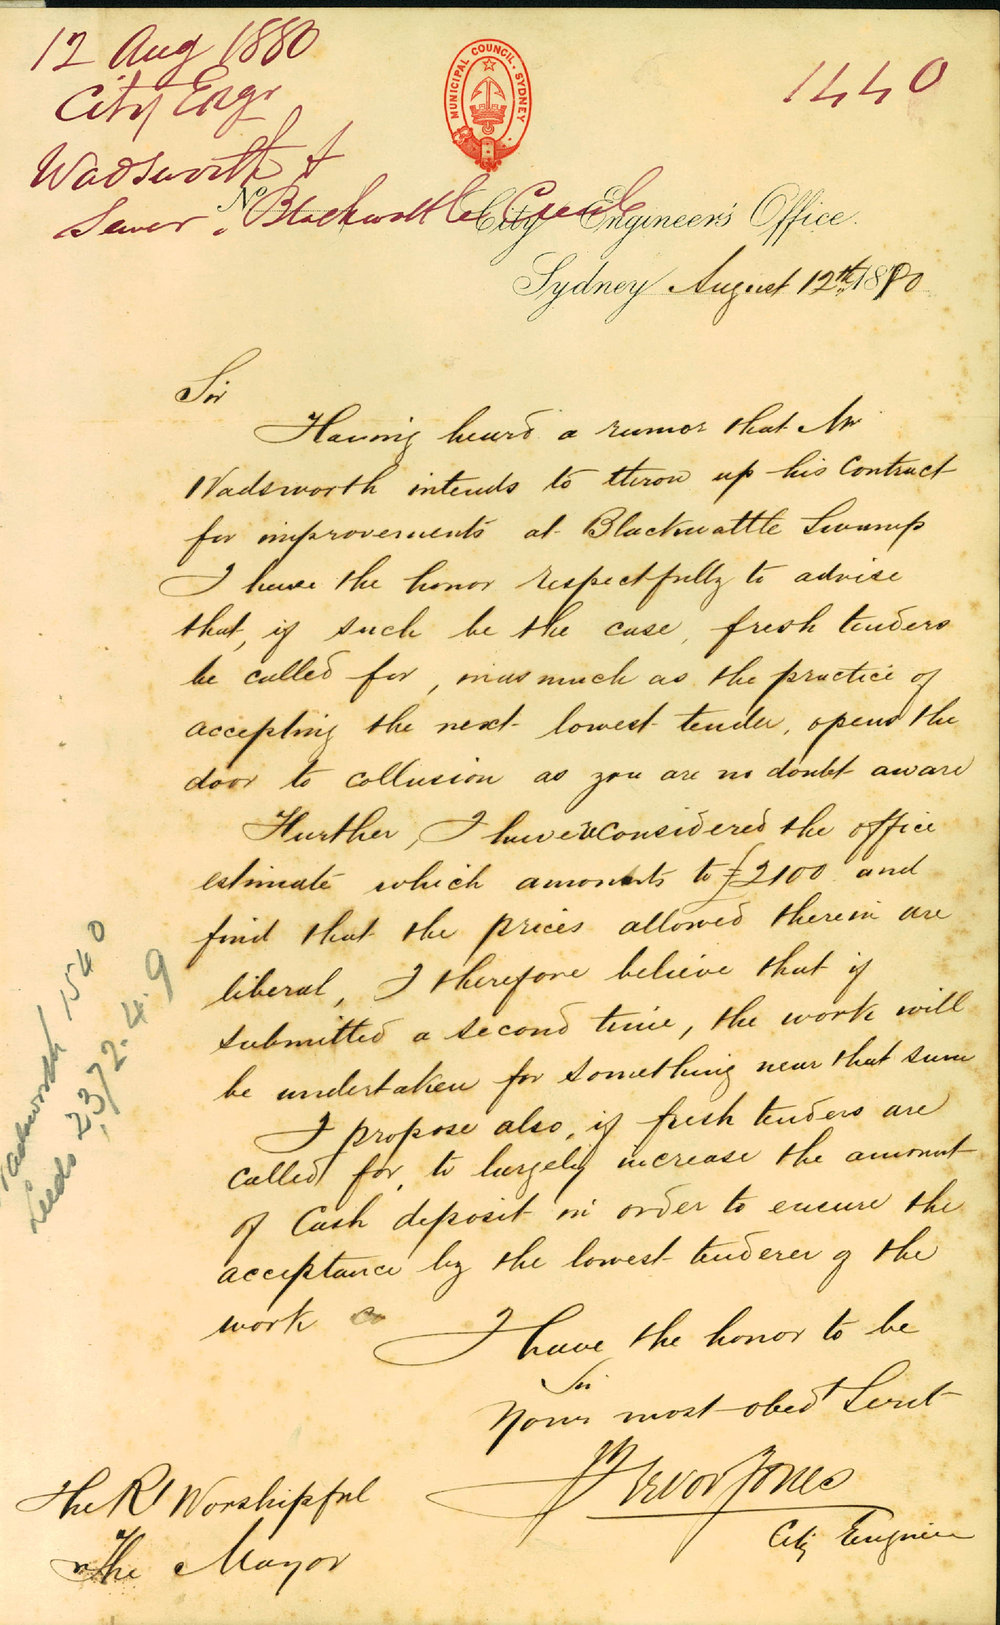 12 Aug 1880
City Engr
Wadsworth &
Sewer, Blackwattle Creek
1440
MUNICIPAL COUNCIL. SYDNEY
No
City Engineer's Office.
Sydney August 12th 1880
Sir
Having heard a rumor that Mr
Wadsworth intends to throw up his Contract
for improvements at Blackwattle Swamp
I have the honor respectfully to advise
that, if such be the case, fresh tenders
be called for, inasmuch as the practice of
accepting the next lowest tender, opens the
door to collusion as you are no doubt aware
Further, I have reconsidered the office
estimate which amounts to £2100 and
find that the prices allowed therein are
liberal, I therefore believe that if
submitted a second time, the work will
be undertaken for something near that sum
I propose also, if fresh tenders are
called for, to largely increase the amount
of Cash deposit in order to ensure the
acceptance by the lowest tenderer of the
work
I have the honor to be
Sir
Yours most obedt Servt
Trevor Jones
City Engineer
The Rt Worshipful
The Mayor
Wadsworth 1540
Leeds 2372.4.9